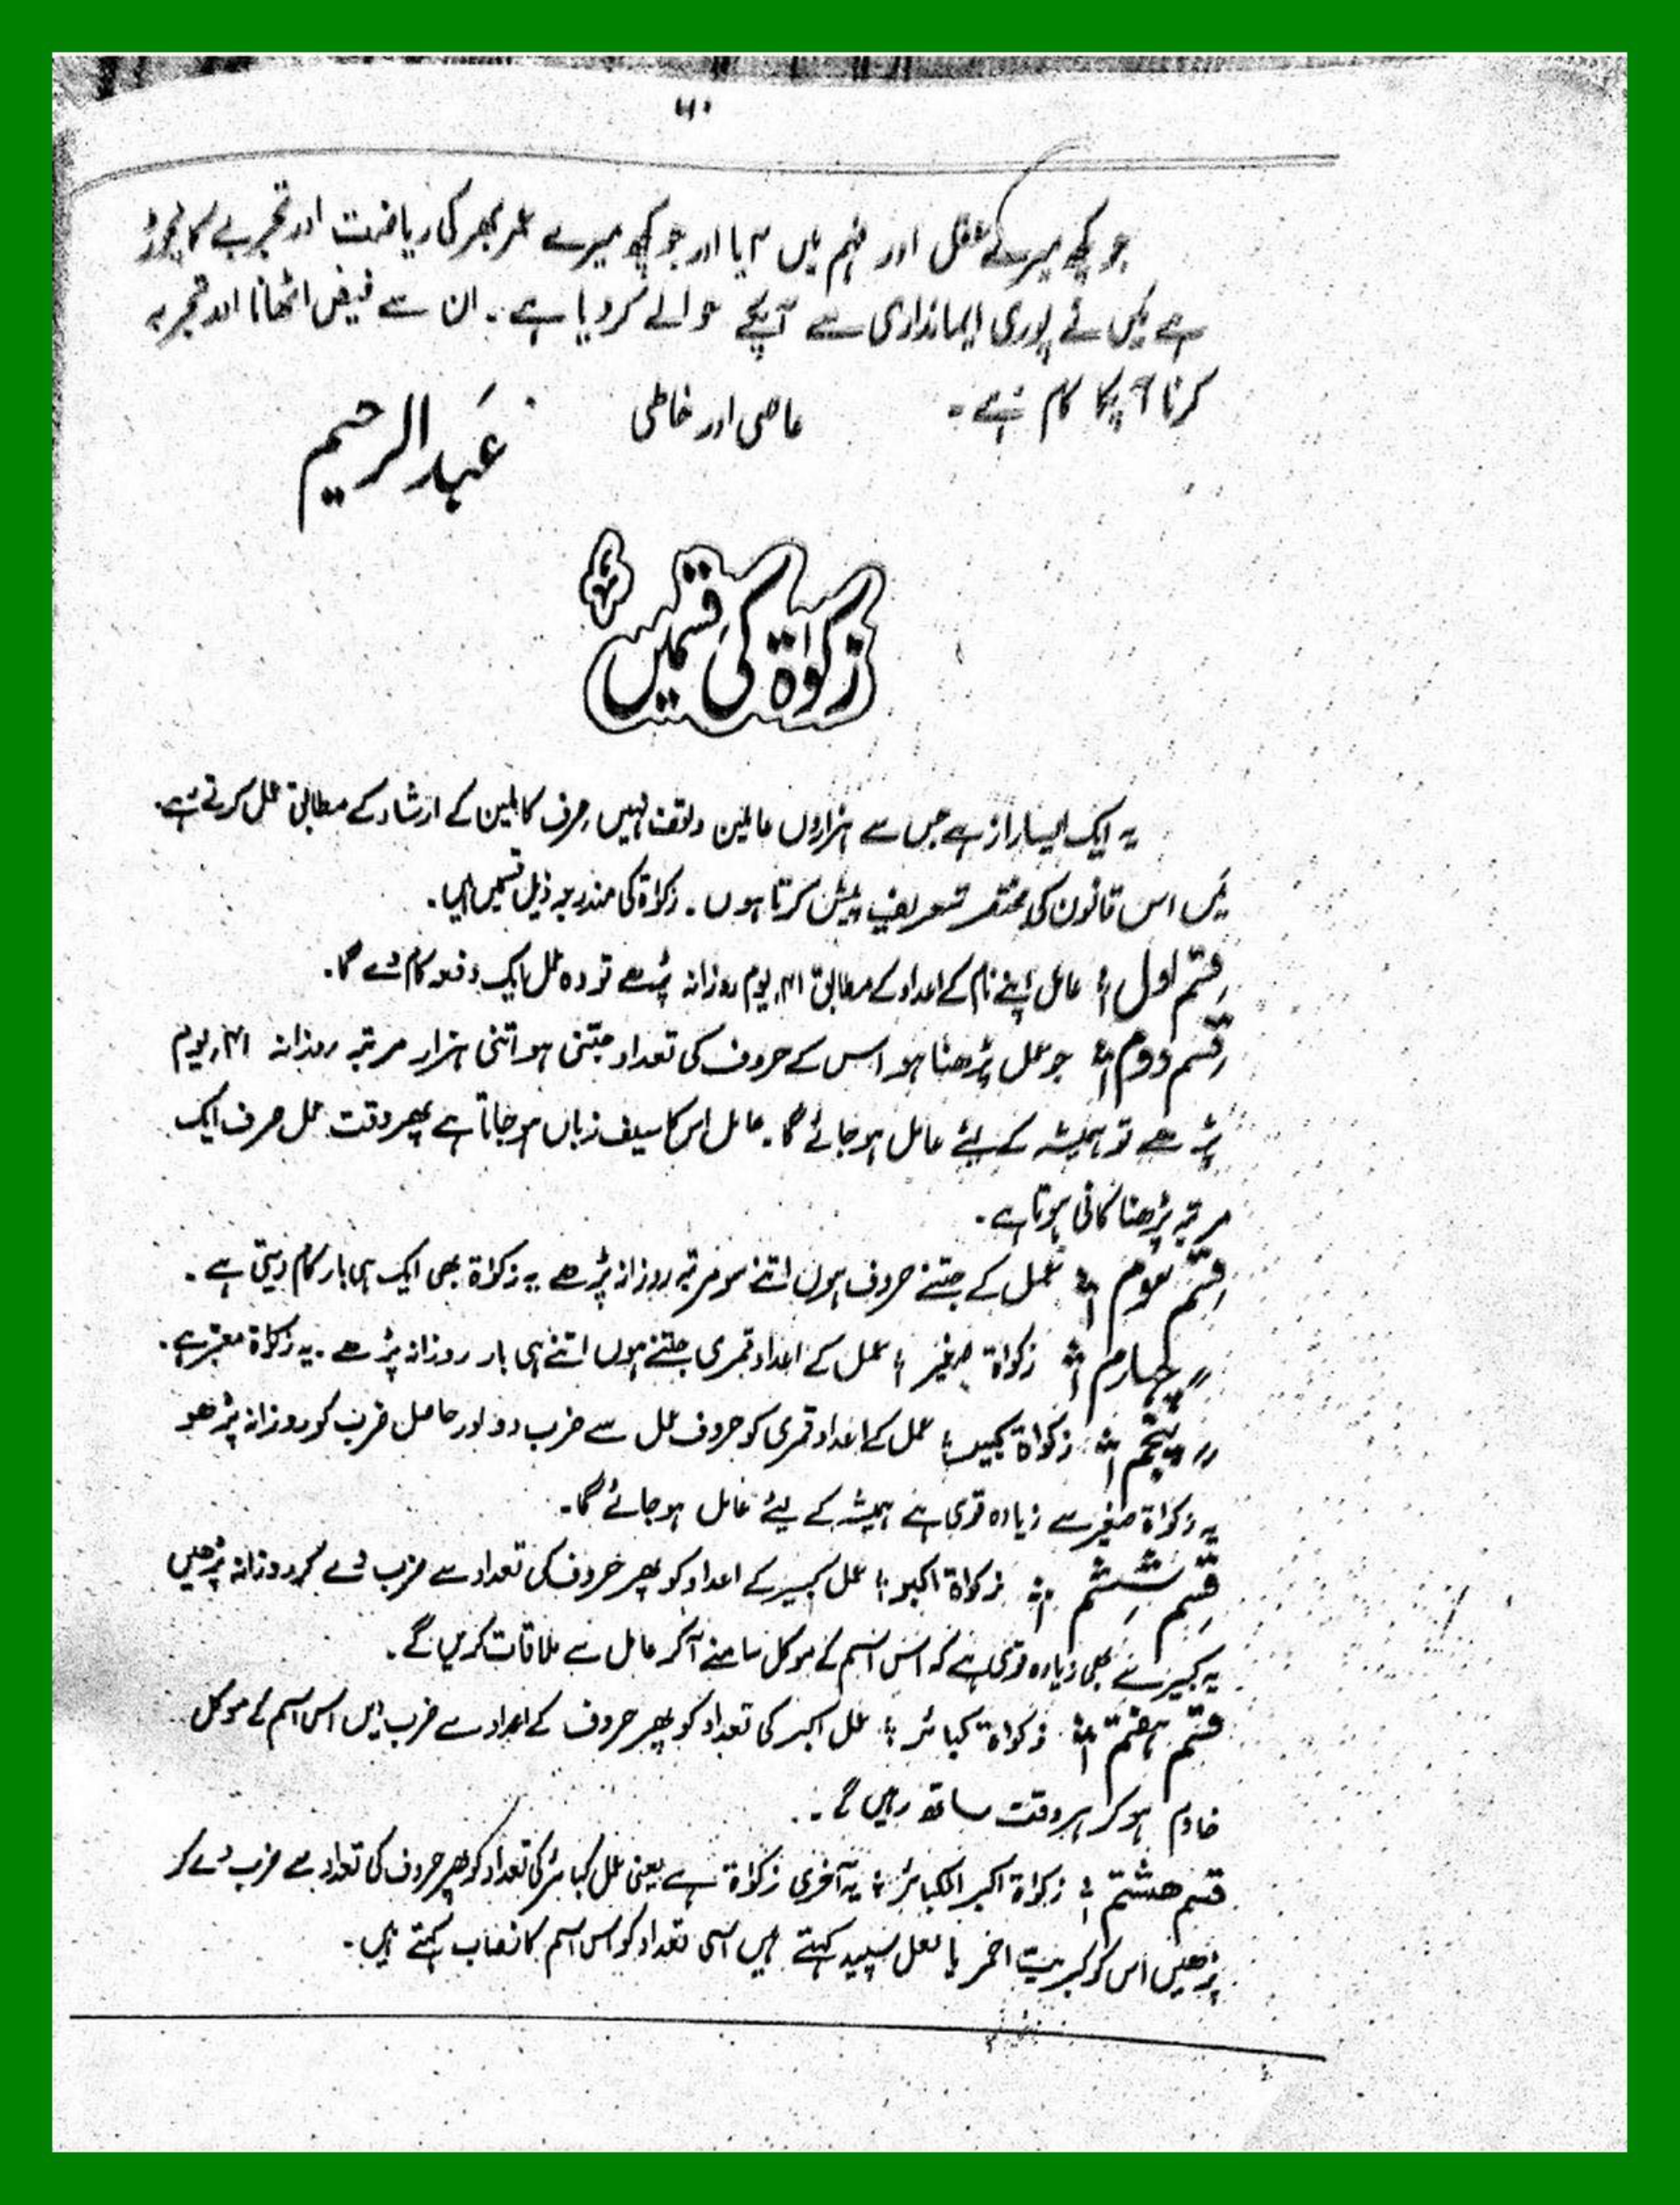 ۶۰
جو کچھ میرے عقل اور فہم میں آیا اور جو کچھ میرے عمر بھر کی ریاضت اور تجربے کا نچوڑ
ہے میں نے پوری ایمانداری سے آپکے حوالے کر دیا ہے۔ ان سے فیض اٹھانا اور تجربہ
کرنا آپکا کام ہے۔ عاصی اور خاطی
عَبد الرحیم
زکواۃ کی قسمیں
یہ ایک ایسا راز ہے جس سے ہزاروں عاملین واقف نہیں صرف کاملین کے ارشاد کے مطابق عمل کرتے ہیں۔
میں اس قانون کی مختصر تعریف پیش کرتا ہوں۔ زکواۃ کی مندرجہ ذیل قسمیں ہیں۔
قسم اول؛ عامل اپنے نام کے اعداد کے مطابق ۴۱ یوم روزانہ پڑھے تو وہ عمل ایک دفعہ کام دے گا۔
قسم دوم؛ جو عمل پڑھنا ہو اس کے حروف کی تعداد جتنی ہو اتنی ہزار مرتبہ روزانہ ۴۱ یوم
پڑھے تو ہمیشہ کے لئے عامل ہو جائے گا۔ عامل اس کا سیف زباں ہو جاتا ہے پھر وقت عمل صرف ایک
مرتبہ پڑھنا کافی ہوتا ہے۔
قسم سوم؛ عمل کے جتنے حروف ہوں اتنے سو مرتبہ روزانہ پڑھے یہ زکواۃ بھی ایک ہی بار کام دیتی ہے۔
〃 چہارم؛ زکواۃ صغیر؛ عمل کے اعداد قمری جتنے ہوں اتنے ہی بار روزانہ پڑھے۔ یہ زکواۃ معتبر ہے۔
〃 پنجم؛ زکواۃ کبیر؛ عمل کے اعداد قمری کو حروف عمل سے ضرب دو اور حاصل ضرب کو روزانہ پڑھو
یہ زکواۃ صغیر سے زیادہ قوی ہے ہمیشہ کے لیئے عامل ہو جائے گا۔
قسم ششم؛ زکواۃ اکبر؛ عمل کبیر کے اعداد کو پھر حروف کی تعداد سے ضرب دے کر روزانہ پڑھیں
یہ کبیر سے بھی زیادہ قوی ہے کہ اس اسم کے موکل سامنے آکر عامل سے ملاقات کریں گے۔
قسم ہفتم؛ زکواۃ کبائر؛ عمل اکبر کی تعداد کو پھر حروف کے اعداد سے ضرب دیں اس اسم کے موکل
خادم ہو کر ہر وقت ساتھ رہیں گے۔
قسم ھشتم؛ زکواۃ اکبر الکبائر؛ یہ آخری زکواۃ ہے یعنی عمل کبائر کی تعداد کو پھر حروف کی تعداد سے ضرب دے کر
پڑھیں اس کو کبریت احمر یا لعل سپید کہتے ہیں اسی تعداد کو اس اسم کا نصاب کہتے ہیں۔